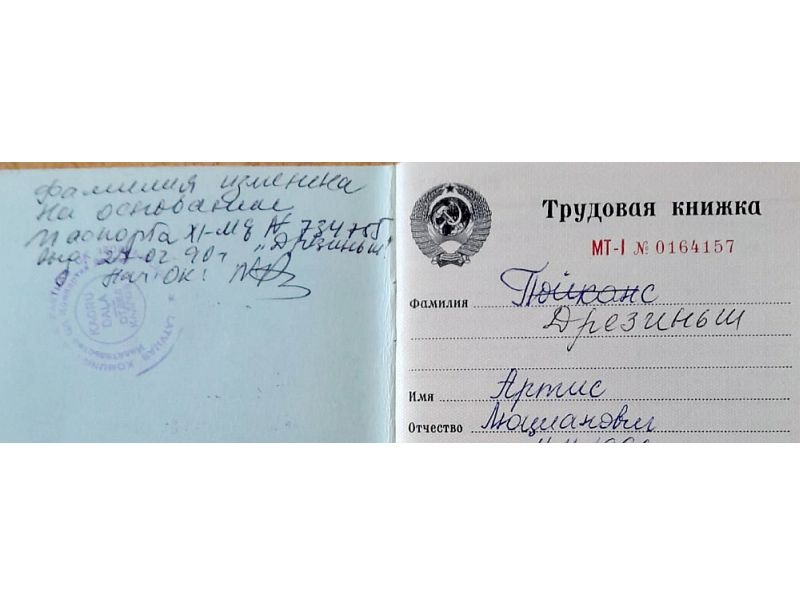 Фамилия изменена
на основании
паспорта XI-МЯ № 734755
от 27.02.90 г "Дрезиньш"
Нач ОК:
KADRU
DAĻA
Трудовая книжка
МТ-I № 0164157
Фамилия Пойканс
Дрезиньш
Имя Артис
Отчество Люцианович